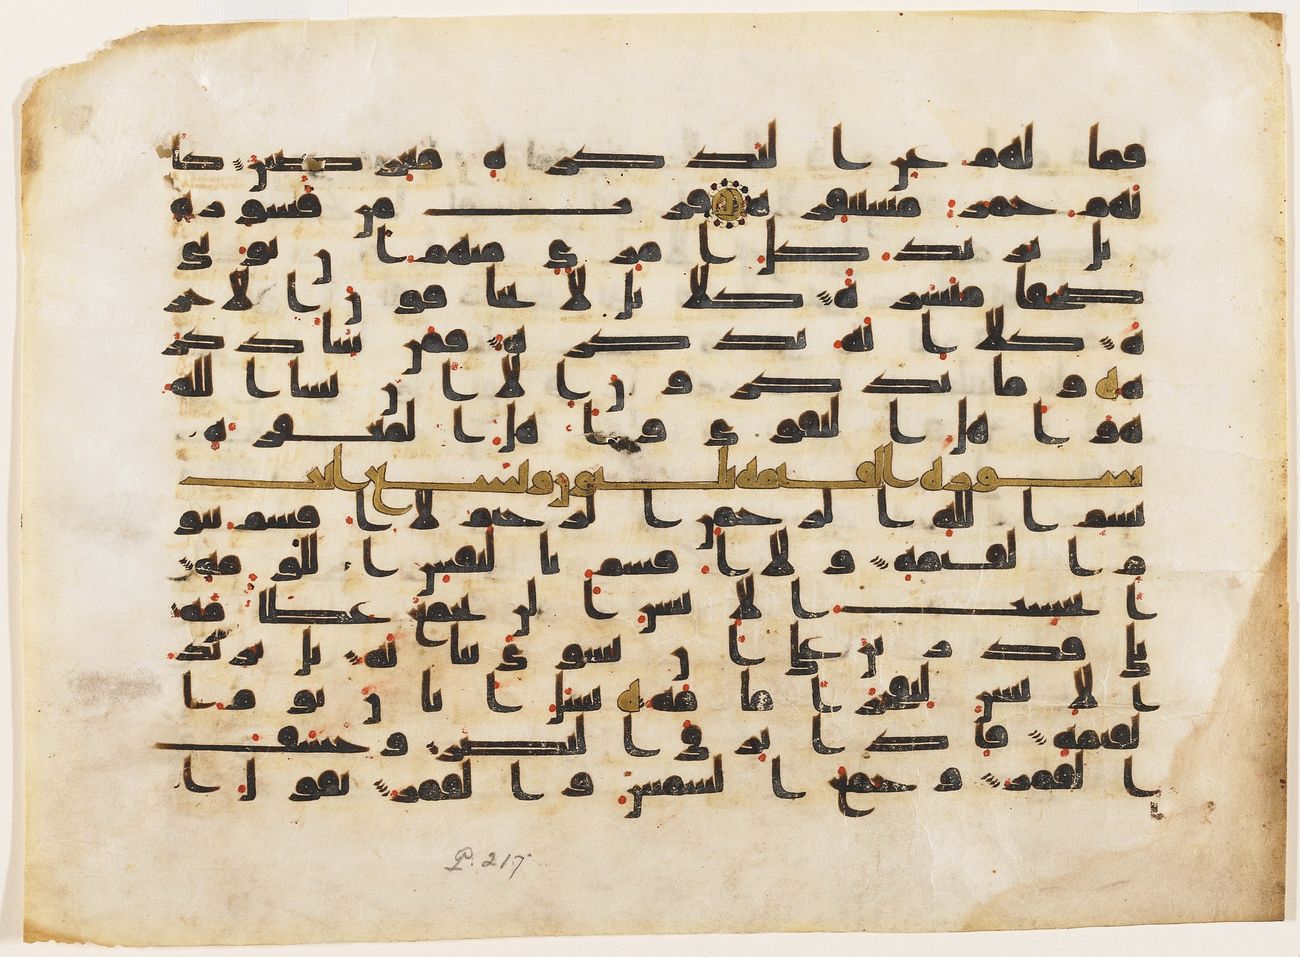 فما لهم عن التذكرة معرضين كا
نهم حمر مستنفرة فرت من قسورة
بل يريد كل امرى منهم ان يوتى
صحفا منشرة كلا بل لا يخافون الاخر
ة كلا انه تذكرة فمن شا ذكر
ه وما يذكرون الا ان يشا الله
هو اهل التقوى واهل المغفرة
سورة القيمة ثلثون وتسع ايت
بسم الله الرحمن الرحيم لا اقسم بيو
م القيمة ولا اقسم بالنفس اللومة
ايحسب الانسن الن نجمع عظامه
بلى قدرين على ان نسوي بنانه بل يريد
الانسن ليفجر امامه يسل ايان يوم ا
لقيمة فاذا برق البصر وخسف
القمر وجمع الشمس والقمر يقول ا
P. 217